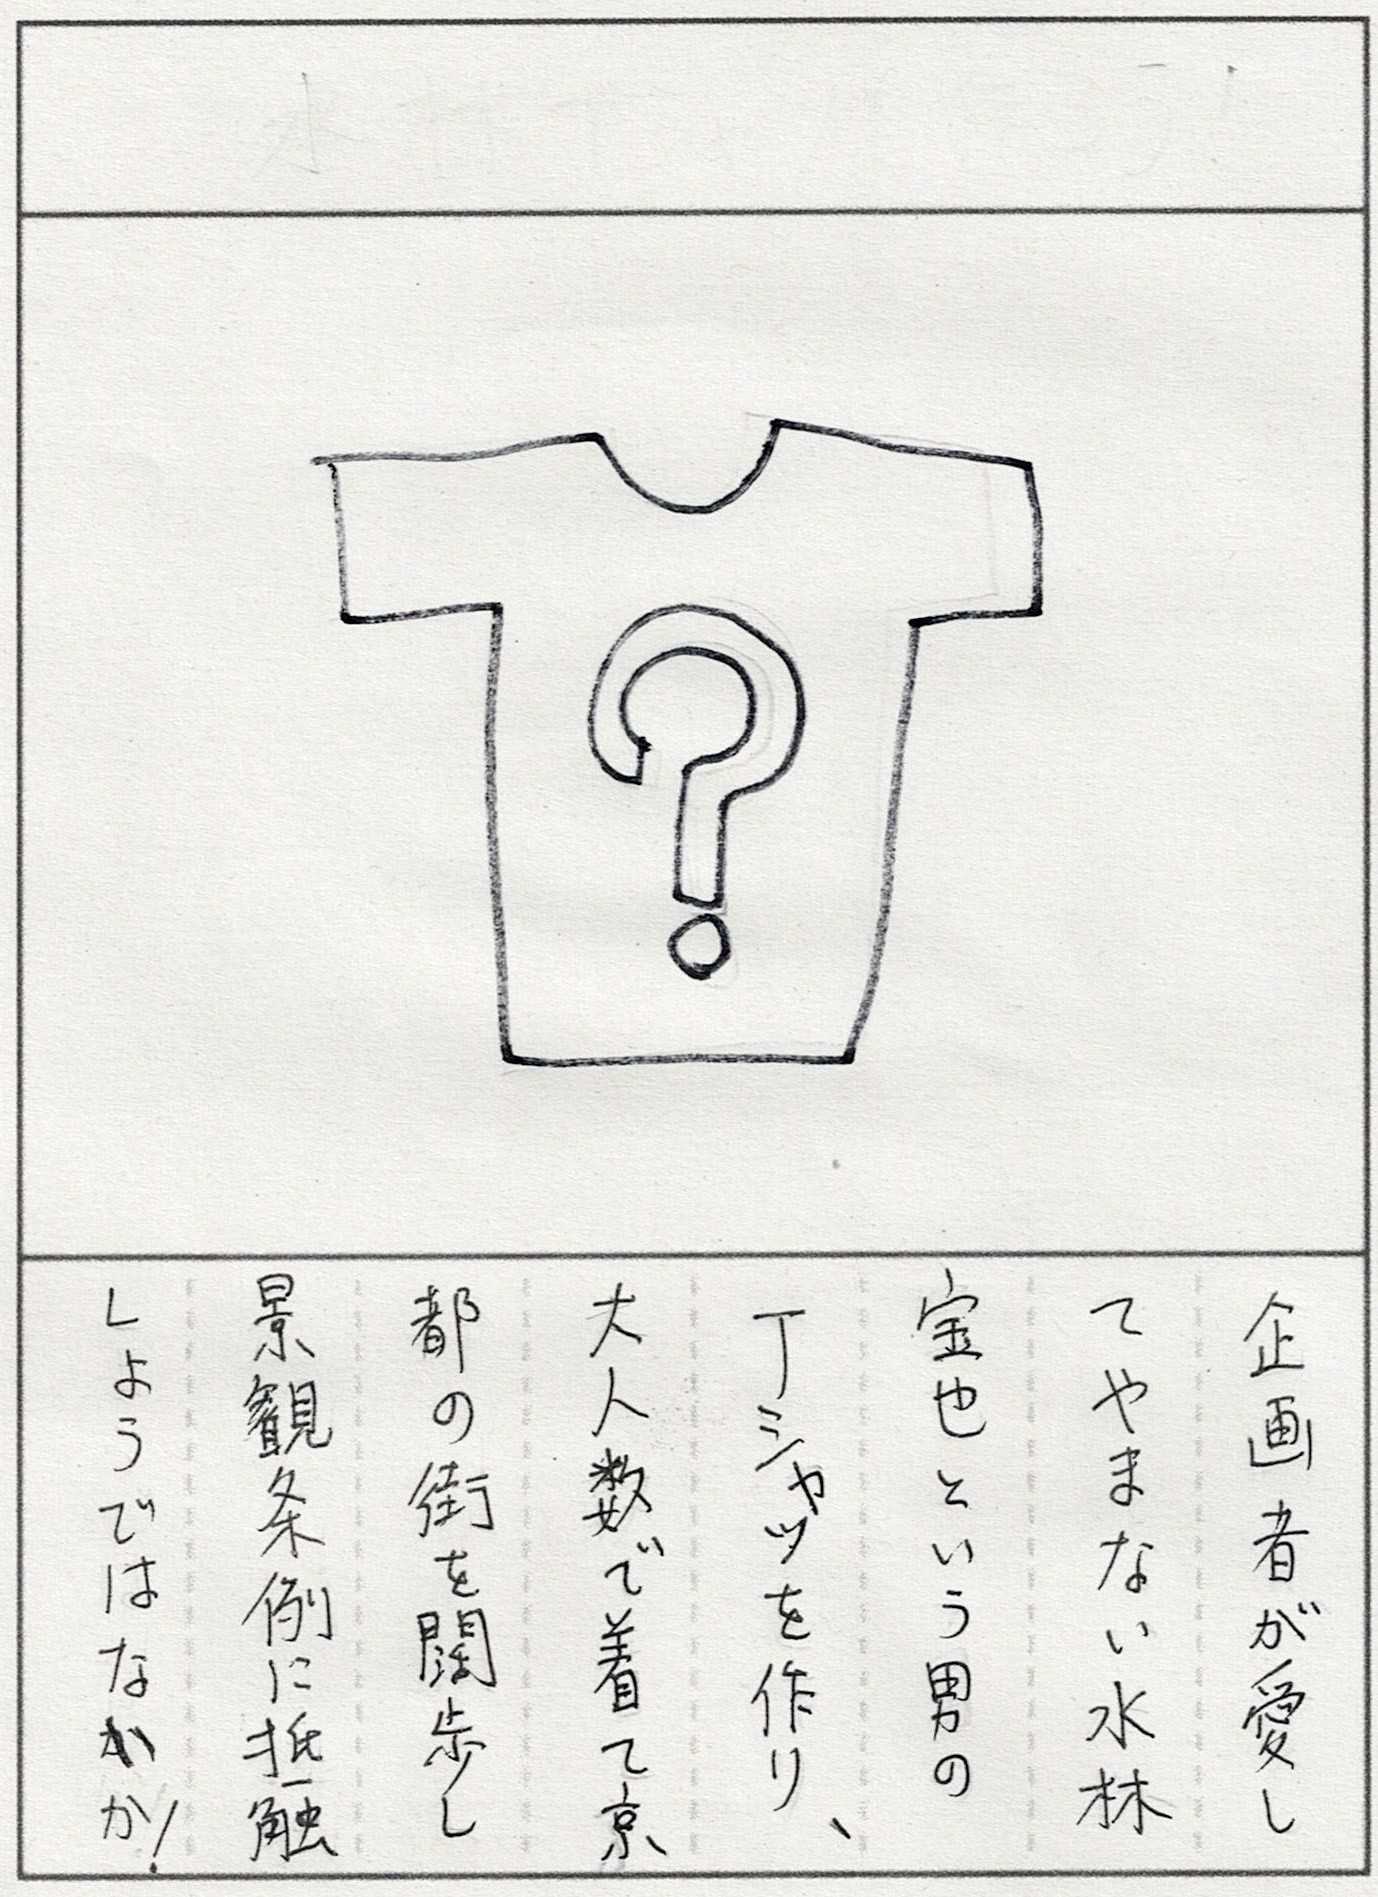 ?
企画者が愛し
てやまない水林
宝也という男の
Tシャツを作り、
大人数で着て京
都の街を闊歩し
景観条例に抵触
しようではなかか!